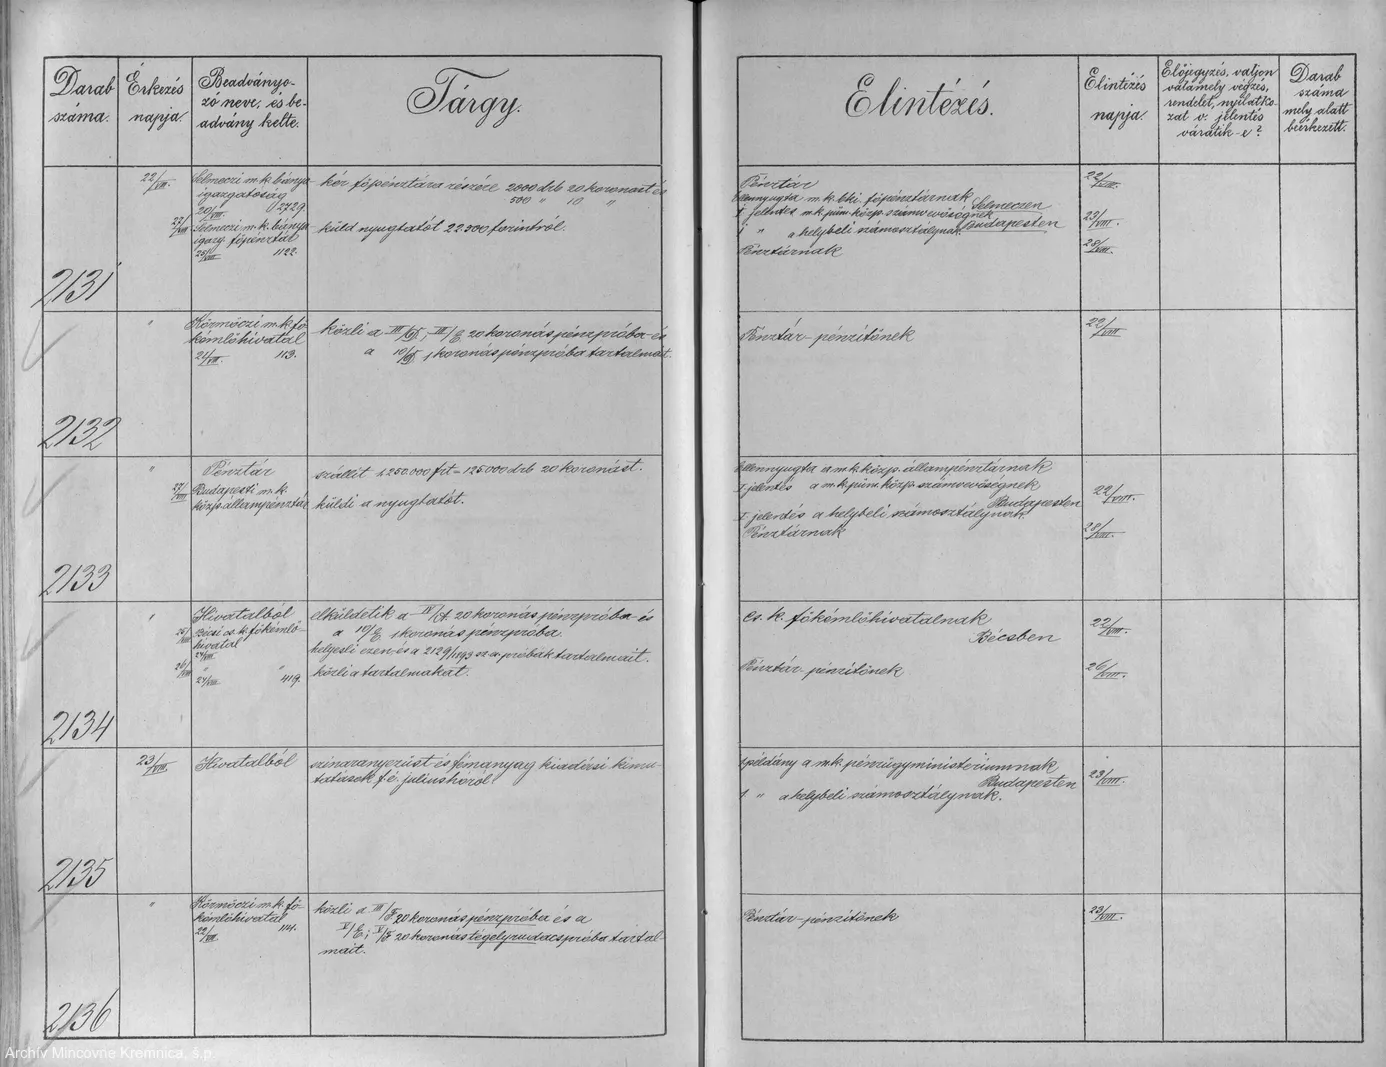 Darab száma.
Érkezés napja.
Beadványo-
zó neve, és be-
advány kelte.
Tárgy.
Elintézés.
Elintézés napja.
Előjegyzés, valjon
valamely végzés,
rendelet, nyilatko-
zat v. jelentés
váratik-e?
Darab
száma
mely alatt
beérkezett.
2131
22/VIII.
Selmeczi m. k. bánya
igazgatóság
20/VIII. 2729.
kér főpénztára részére 2000 drb 20 koronást és
500 " 10 "
27/VIII
Selmeczi m. k. bánya
igazg. főpénztál
25/VIII 1122.
küld nyugtatót 22.500 forintról.
Pénztár
Ellennyugta m. k. bki. főpénztárnak
Selmeczen
1 jelentés m. k. püm. közp. számvevőségnek
Budapesten
1 " a helybeli számosztálynak.
Pénztárnak
22/VIII.
23/VIII.
28/VIII.
2132
"
Körmöczi m. k. fő-
kémlőhivatal
21/VIII. 113.
közli a III/D, III/E 20 koronás pénzpróba és
a 10/D 1 koronás pénzpróba tartalmait.
Pénztár-pénzítőnek
22/VIII
2133
"
Pénztár
szállít 1,250.000 frt = 125000 drb 20 koronást.
27/VIII
Budapesti m. k.
közp. állampénztár
küldi a nyugtatót.
Ellennyugta a m. k. közp. állampénztárnak
1 jelentés a m. k. püm. közp. számvevőségnek
Budapesten
1 jelentés a helybeli számosztálynak.
Pénztárnak
22/VIII.
28/VIII.
2134
"
Hivatalból
elküldetik a IV/A 20 koronás pénzpróba és
a 10/E 1 koronás pénzpróba.
25/VIII
Bécsi cs. k. főkémlő-
hivatal
24/VIII.
helyesli ezen és a 2129/1893 sz. a. próbák tartalmait.
26/VIII
" "
24/VIII 419.
közli a tartalmakat.
cs. k. főkémlőhivatalnak
Bécsben
Pénztár-pénzítőnek
22/VIII.
26/VIII.
2135
23/VIII.
Hivatalból
színaranyezüst és fémanyag kiadási kimu-
tatások f. é. julius hóról
1 példány a m. k. pénzügyministeriumnak
Budapesten
1 " a helybeli számosztálynak.
23/VIII.
2136
"
Körmöczi m. k. fő-
kémlőhivatal
22/VIII 114.
közli a III/F 20 koronás pénzpróba és a
V/E; V/F 20 koronás tégelyrudacspróba tartal-
mait.
Pénztár-pénzítőnek
23/VIII.
Archív Mincovne Kremnica, š.p.